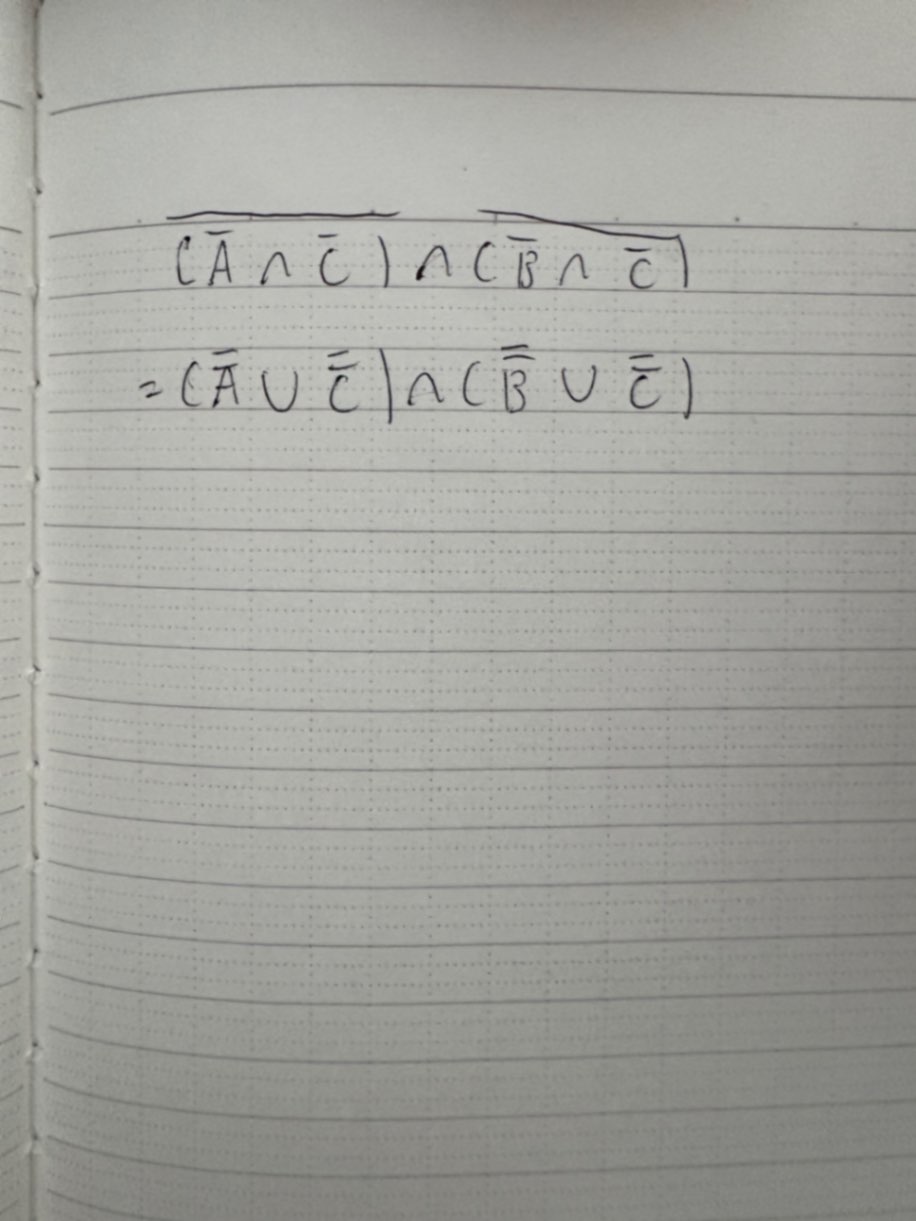 $\overline{(\bar{A} \cap \bar{C})} \cap \overline{(\bar{B} \cap \bar{C})}$
$= (\bar{A} \cup \bar{\bar{C}}) \cap (\bar{\bar{B}} \cup \bar{\bar{C}})$